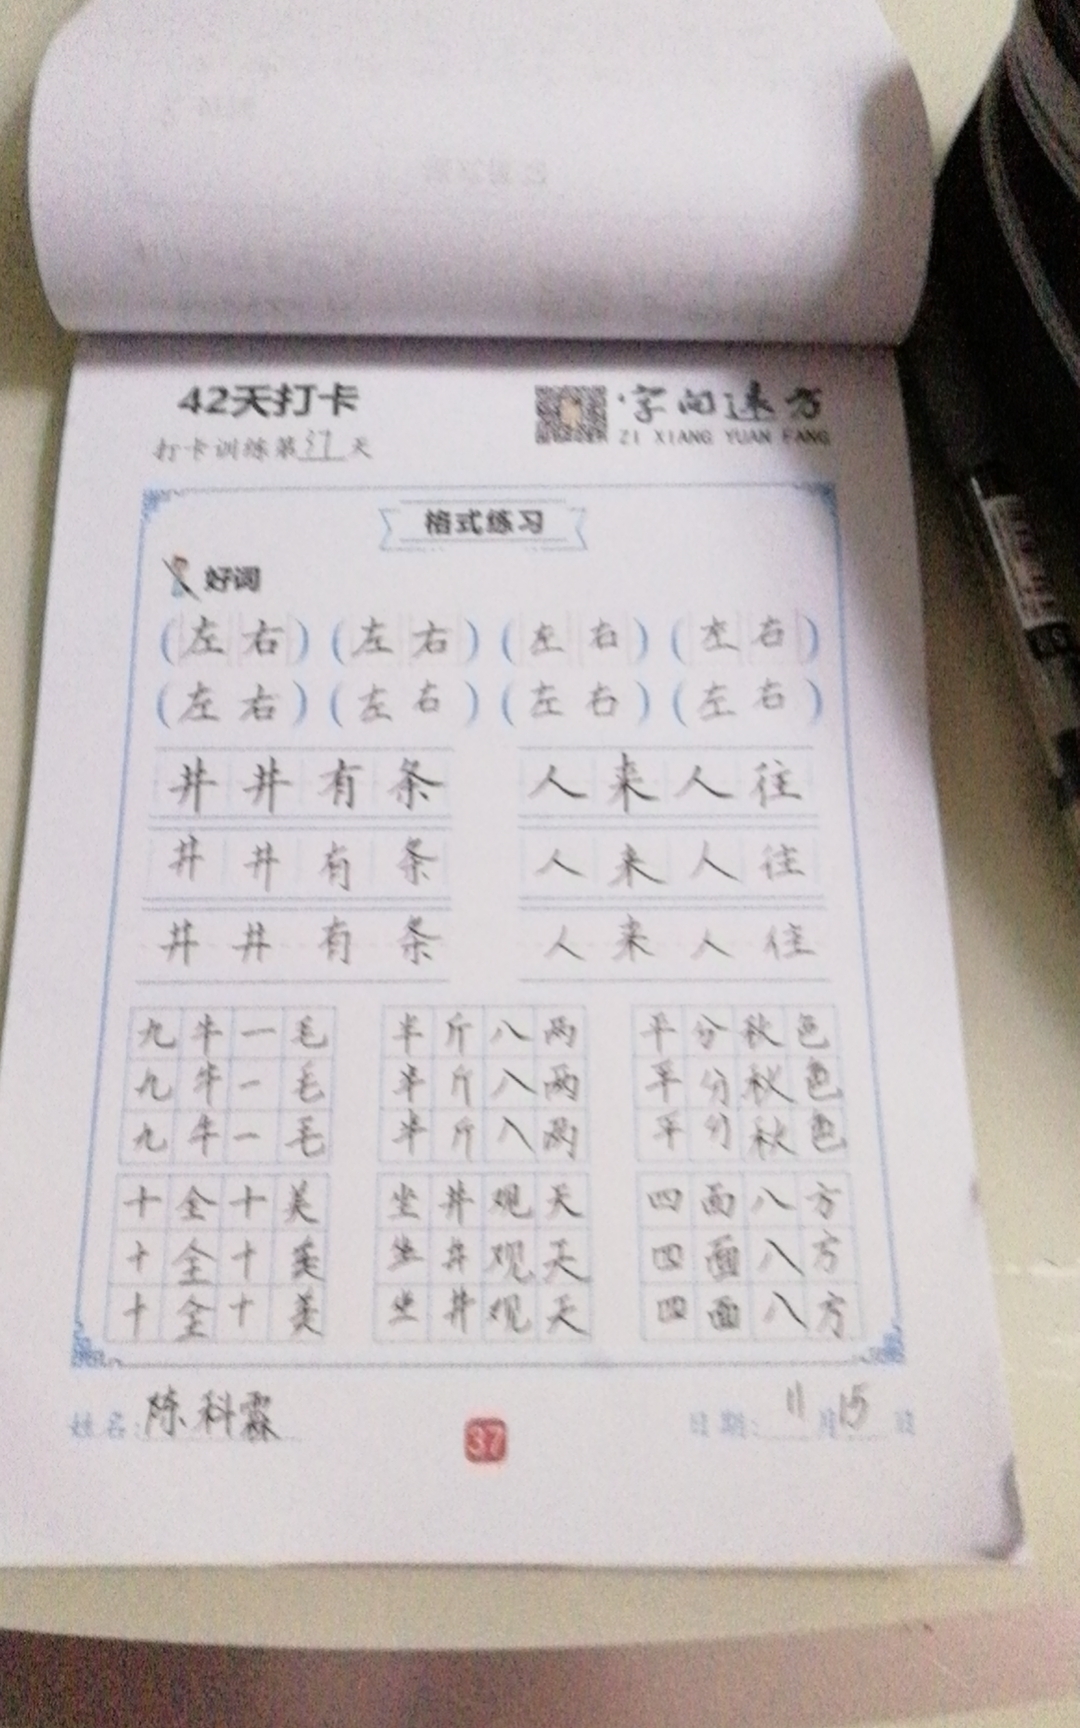 42天打卡
字向远方
ZI XIANG YUAN FANG
打卡训练第37天
格式练习
好词
(左右) (左右) (左右) (左右)
(左右) (左右) (左右) (左右)
井井有条 人来人往
井井有条 人来人往
井井有条 人来人往
九牛一毛 半斤八两 平分秋色
九牛一毛 半斤八两 平分秋色
九牛一毛 半斤八两 平分秋色
十全十美 坐井观天 四面八方
十全十美 坐井观天 四面八方
十全十美 坐井观天 四面八方
姓名:陈科霖 37 日期:11月15日